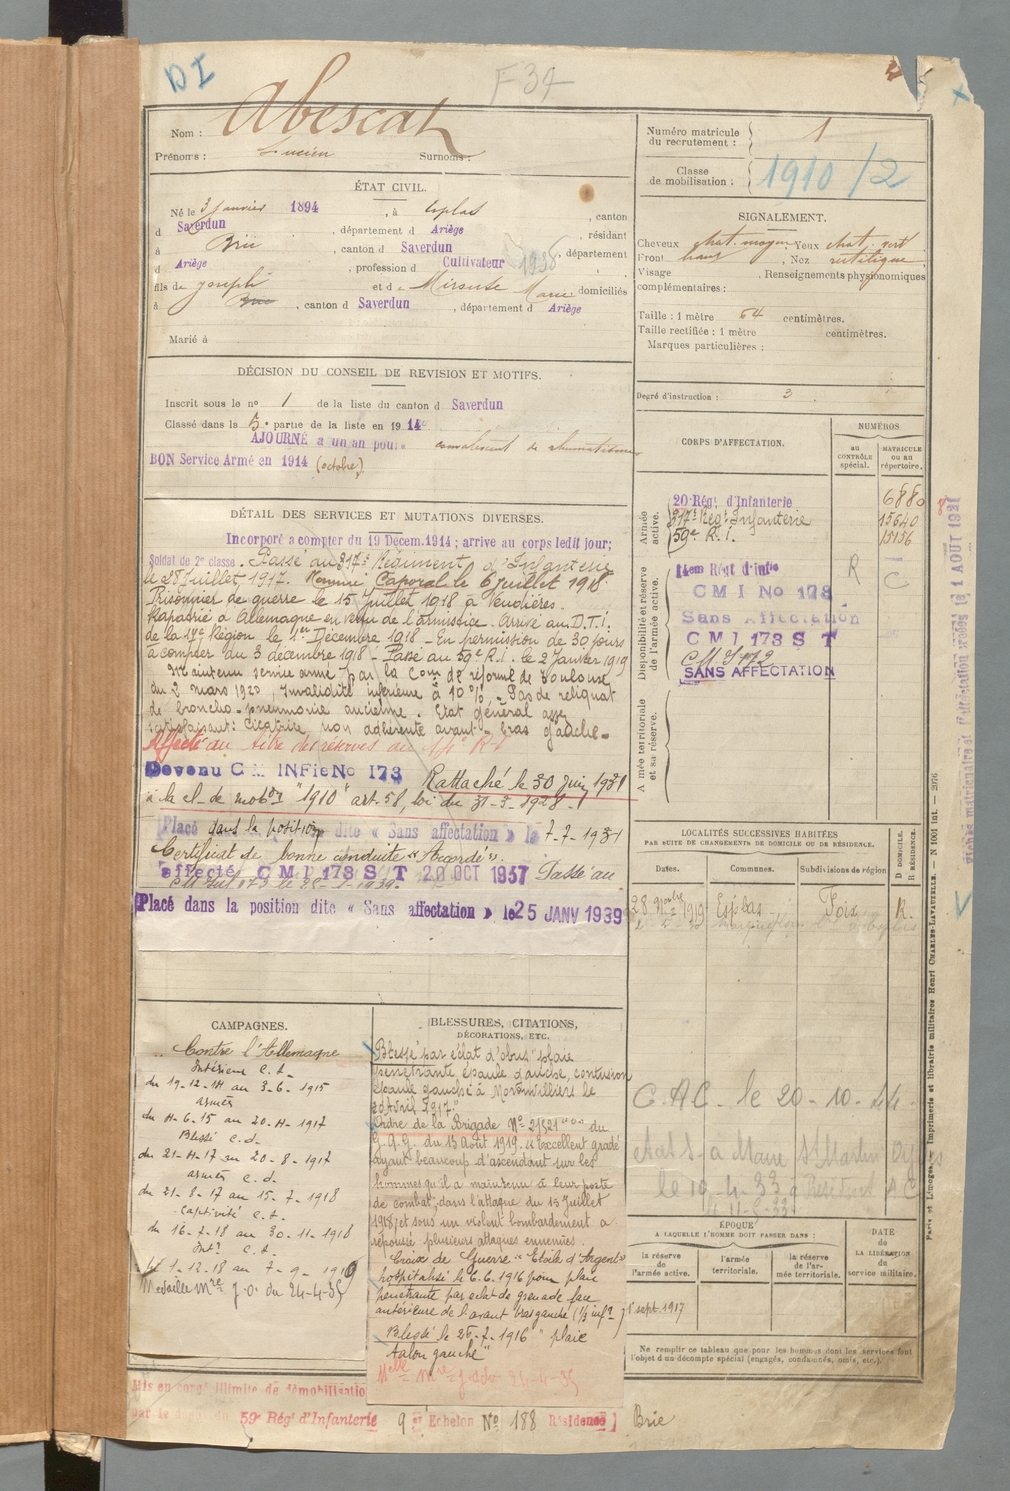 DI
F 37
Nom : Abescat
Prénoms : Lucien Surnoms :
ÉTAT CIVIL.
Né le 3 janvier 1894, à Esplas, canton
d Saverdun, département d Ariège, résidant
à Brie, canton d Saverdun, département
d Ariège, profession d Cultivateur 1938
fils de Joseph et de Mirouse Marie domiciliés
à Brie, canton d Saverdun, département d Ariège
Marié à
DÉCISION DU CONSEIL DE REVISION ET MOTIFS.
Inscrit sous le no 1 de la liste du canton d Saverdun
Classé dans la 5e partie de la liste en 1914
AJOURNÉ à un an pour convalescent de rhumatismes
BON Service Armé en 1914 (octobre)
DÉTAIL DES SERVICES ET MUTATIONS DIVERSES.
Incorporé a compter du 19 Décem. 1914 ; arrive au corps ledit jour;
Soldat de 2e classe. Passé au 317e Régiment d'Infanterie
le 28 Juillet 1917. Nommé Caporal le 6 Juillet 1918
Prisonnier de guerre le 15 Juillet 1918 à Vendières.
Rapatrié d'Allemagne en vertu de l'armistice. Arrivé au D.T.I.
de la 17e Région le 1er Décembre 1918 - En permission de 30 jours
à compter du 3 décembre 1918 - Passé au 59e R.I. le 2 Janvier 1919
Maintenu service armé par la Com on de réforme de Toulouse
du 2 mars 1920, Invalidité inférieure à 10 %. Pas de reliquat
de broncho-pneumonie ancienne. Etat général assez
satisfaisant: Cicatrice non adhérente avant-bras gauche.
Affecté au titre des réserves au 14e R.I.
Devenu C M INFie No 173 Rattaché le 30 Juin 1931
à la cl. de mobon "1910" art. 58, loi du 31-3-1928.
Placé dans la position dite « Sans affectation » le 7-7-1931
Certificat de bonne conduite "Accordé".
affecté C M I 173 S T 20 OCT 1937 Passé au
Placé dans la position dite « Sans affectation » le 25 JANV 1939
CAMPAGNES.
Contre l'Allemagne
Intérieur C.S.
du 19-12-14 au 3-6-1915
armées
du 4-6-15 au 20-4-1917
Blessé C.d.
du 21-4-17 au 20-8-1917
armées C.d.
du 21-8-17 au 15-7-1918
Captivité C.S.
du 16-7-18 au 30-11-1918
Intr C.S.
du 1-12-18 au 7-9-1919
Médaille Mre J.O. du 24-4-35
BLESSURES, CITATIONS,
DÉCORATIONS, ETC.
Blessé par éclat d'obus "plaie
pénétrante épaule gauche, contusion
épaule gauche à Moronvilliers le
20 Avril 1917."
Ordre de la Brigade No 21521 "D" du
G.Q.G. du 15 Août 1919. "Excellent gradé
ayant beaucoup d'ascendant sur les
hommes qu'il a maintenu à leur poste
de combat, dans l'attaque du 15 Juillet
1918, et sous un violent bombardement a
repoussé plusieurs attaques ennemies.
Croix de Guerre "Etoile d'Argent"
hospitalisé le 6.6.1916 pour plaie
pénétrante par eclat de grenade face
antérieure de l'avant bras gauche (1/3 infr)
Blessé le 25-7-1916 "plaie
talon gauche"
Melle Mre J.O. du 24-4-35
Mis en congé illimité de démobilisation
par le dépôt du 59e Régt d'Infanterie 9e Echelon No 188 Résidence] Brie
Numéro matricule
du recrutement : 1
Classe
de mobilisation : 1910/2
SIGNALEMENT.
Cheveux chat. moyen Yeux chat. vert
Front haut, Nez rectiligne
Visage, Renseignements physionomiques
complémentaires :
Taille : 1 mètre 64 centimètres.
Taille rectifiée : 1 mètre centimètres.
Marques particulières :
Degré d'instruction : 3
CORPS D'AFFECTATION.
NUMÉROS
au CONTRÔLE spécial.
MATRICULE ou au répertoire.
Armée active.
20 Régt d'Infanterie 6880
317e Régt Infanterie 15640
59e R.I. 15156
Disponibilité et réserve de l'armée active.
14em Regt d'infie R
C M I No 173 C
Sans Affectation
C M I 173 S T
C M I 172
SANS AFFECTATION
Armée territoriale et sa réserve.
LOCALITÉS SUCCESSIVES HABITÉES
PAR SUITE DE CHANGEMENTS DE DOMICILE OU DE RÉSIDENCE.
Dates. Communes. Subdivisions de région D DOMICILE. R RÉSIDENCE.
28 9bre 1919 Esplas Foix R.
C.A.C. le 20-10-44
ÉPOQUE
A LAQUELLE L'HOMME DOIT PASSER DANS :
la réserve de l'armée active.
l'armée territoriale.
la réserve de l'armée territoriale.
DATE de LA LIBÉRATION du service militaire.
1 sept. 1917
Ne remplir ce tableau que pour les hommes dont les services font
l'objet d'un décompte spécial (engagés, condamnés, omis, etc.).
Paris et Limoges. — Imprimerie et librairie militaires Henri CHARLES-LAVAUZELLE. — N 1001 Int. — 2076